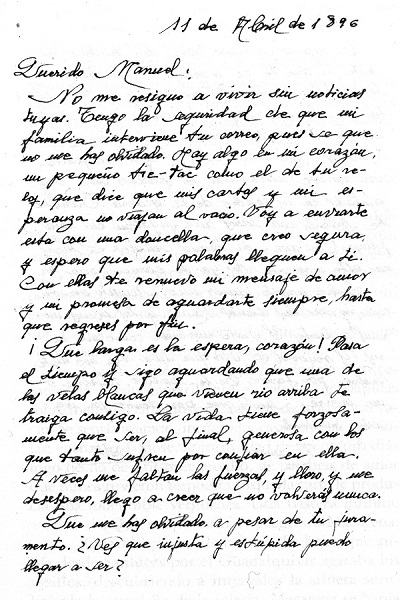 11 de Abril de 1896
Querido Manuel:
No me resigno a vivir sin noticias
tuyas. Tengo la seguridad de que mi
familia interviene tu correo, pues se que
no me has olvidado. Hay algo en mi corazón,
un pequeño tic-tac como el de tu re-
loj, que dice que mis cartas y mi es-
peranza no viajan al vacio. Voy a enviarte
esta con una doncella, que creo segura,
y espero que mis palabras lleguen a ti.
Con ellas te renuevo mi mensaje de amor
y mi promesa de aguardarte siempre, hasta
que regreses por fin.
¡Que larga es la espera, corazón! Pasa
el tiempo y sigo aguardando que una de
las velas blancas que vienen rio arriba te
traiga contigo. La vida tiene forzosa-
mente que ser, al final, generosa con los
que tanto sufren por confiar en ella.
A veces me faltan las fuerzas, y lloro, y me
desespero, llego a creer que no volverás nunca.
Que me has olvidado, a pesar de tu jura-
mento. ¿Ves que injusta y estúpida puedo
llegar a ser?